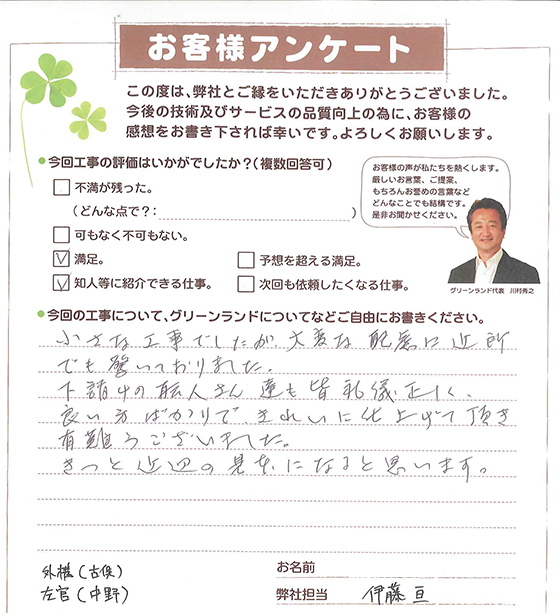 お客様アンケート
この度は、弊社とご縁をいただきありがとうございました。
今後の技術及びサービスの品質向上の為に、お客様の
感想をお書き下されば幸いです。よろしくお願いします。
●今回工事の評価はいかがでしたか?(複数回答可)
不満が残った。
(どんな点で?: )
可もなく不可もない。
満足。
予想を超える満足。
知人等に紹介できる仕事。
次回も依頼したくなる仕事。
お客様の声が私たちを熱くします。
厳しいお言葉、ご提案、
もちろんお誉めの言葉など
どんなことでも結構です。
是非お聞かせください。
グリーンランド代表 川村秀之
●今回の工事について、グリーンランドについてなどご自由にお書きください。
小さな工事でしたが、大変な配慮に近所
でも驚いておりました。
下請けの職人さん達も皆礼儀正しく、
良い方ばかりで、きれいに仕上げて頂き
有難うございました。
きっと近辺の見本になると思います。
外構(古俣)
左官(中野)
お名前
弊社担当 伊藤 亘